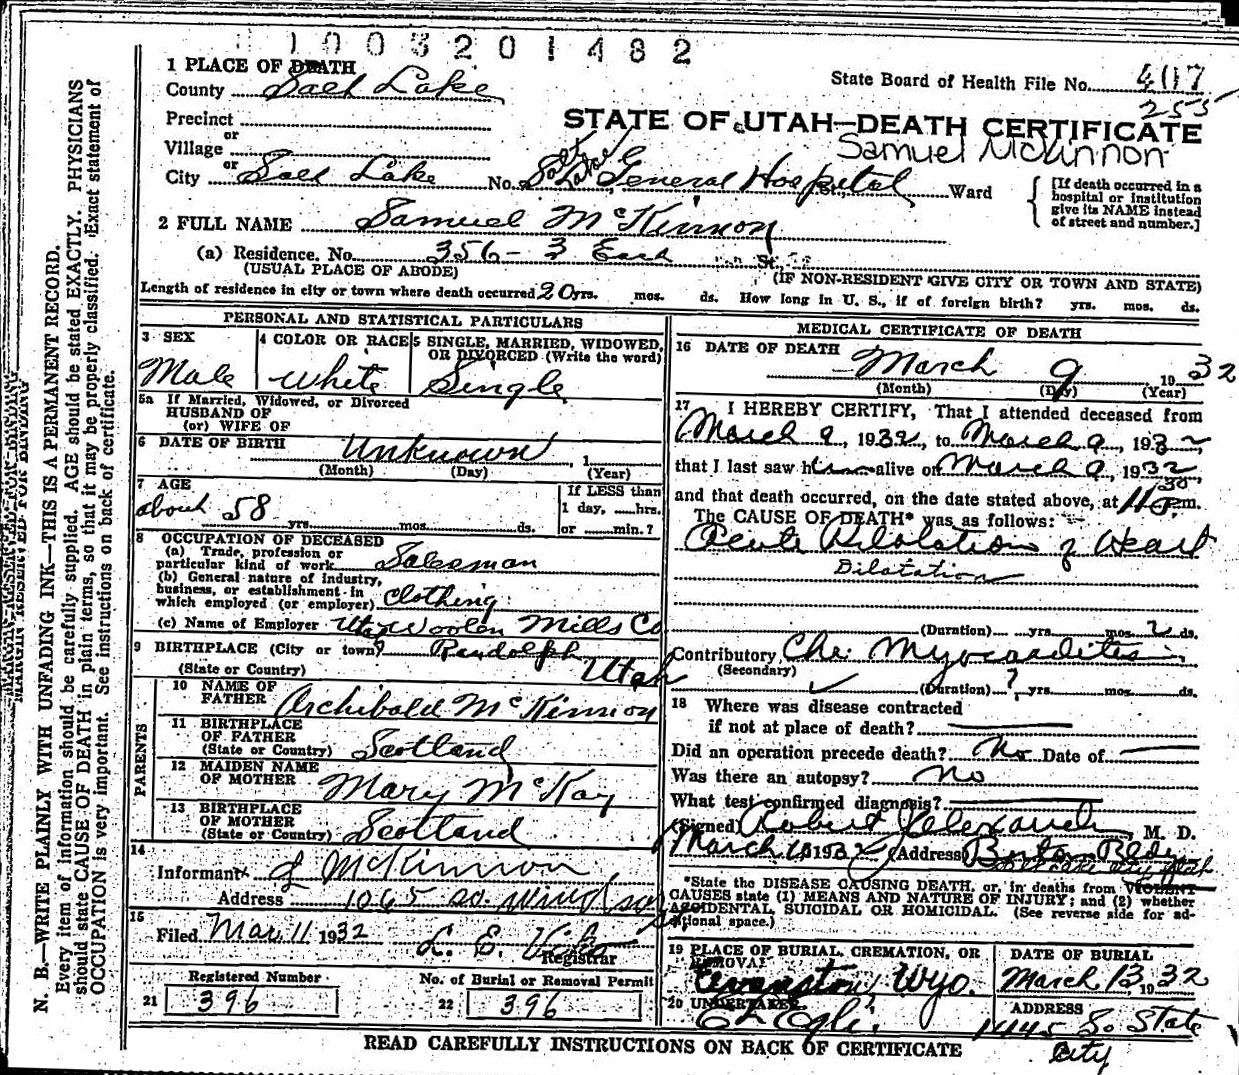 1003201482
1 PLACE OF DEATH
County Salt Lake
State Board of Health File No. 407
255
Precinct
or
Village
or
STATE OF UTAH—DEATH CERTIFICATE
Samuel McKinnon
City Salt Lake No. Salt Lake General Hospital Ward
[If death occurred in a hospital or institution give its NAME instead of street and number.]
2 FULL NAME Samuel McKinnon
(a) Residence. No. 356 - 3 East St.
(USUAL PLACE OF ABODE) (IF NON-RESIDENT GIVE CITY OR TOWN AND STATE)
Length of residence in city or town where death occurred 20 yrs. mos. ds. How long in U. S., if of foreign birth? yrs. mos. ds.
PERSONAL AND STATISTICAL PARTICULARS
3 SEX
Male
4 COLOR OR RACE
White
5 SINGLE, MARRIED, WIDOWED,
OR DIVORCED (Write the word)
Single
5a If Married, Widowed, or Divorced
HUSBAND OF
(or) WIFE OF
6 DATE OF BIRTH Unknown, 1
(Month) (Day) (Year)
7 AGE
about 58 yrs. mos. ds.
If LESS than
1 day, hrs.
or min.?
8 OCCUPATION OF DECEASED
(a) Trade, profession or
particular kind of work Salesman
(b) General nature of industry,
business, or establishment in
which employed (or employer) Clothing
(c) Name of Employer Utah Woolen Mills Co
9 BIRTHPLACE (City or town) Randolph
(State or Country) Utah
PARENTS
10 NAME OF
FATHER Archibald McKinnon
11 BIRTHPLACE
OF FATHER
(State or Country) Scotland
12 MAIDEN NAME
OF MOTHER Mary McKay
13 BIRTHPLACE
OF MOTHER
(State or Country) Scotland
14
Informant J McKinnon
Address 1065 So.
15
Filed Mar 11 1932 L. E.
Registrar
Registered Number
21 396
No. of Burial or Removal Permit
22 396
MEDICAL CERTIFICATE OF DEATH
16 DATE OF DEATH
March 9 1932
(Month) (Day) (Year)
17 I HEREBY CERTIFY, That I attended deceased from
March 9, 1932, to March 9, 1932,
that I last saw him alive on March 9, 1932,
and that death occurred, on the date stated above, at 11 30 P.m.
The CAUSE OF DEATH* was as follows:
Acute Dilatation of Heart
Dilatation
(Duration) yrs. mos. 2 ds.
Contributory Chr. Myocarditis
(Secondary)
(Duration) ? yrs. mos. ds.
18 Where was disease contracted
if not at place of death?
Did an operation precede death? No Date of
Was there an autopsy? No
What test confirmed diagnosis?
(Signed) Robert Alexander, M. D.
March 10 1932 (Address) Boston Bldg
*State the DISEASE CAUSING DEATH, or, in deaths from VIOLENT
CAUSES state (1) MEANS AND NATURE OF INJURY; and (2) whether
ACCIDENTAL, SUICIDAL OR HOMICIDAL. (See reverse side for additional space.)
19 PLACE OF BURIAL, CREMATION, OR
REMOVAL
Evanston, Wyo.
DATE OF BURIAL
March 13, 1932
20 UNDERTAKER
ADDRESS
1445 So. State
City
READ CAREFULLY INSTRUCTIONS ON BACK OF CERTIFICATE
MARGIN RESERVED FOR BINDING
N. B.—WRITE PLAINLY WITH UNFADING INK—THIS IS A PERMANENT RECORD.
Every item of information should be carefully supplied. AGE should be stated EXACTLY. PHYSICIANS
should state CAUSE OF DEATH in plain terms, so that it may be properly classified. Exact statement of
OCCUPATION is very important. See instructions on back of certificate.